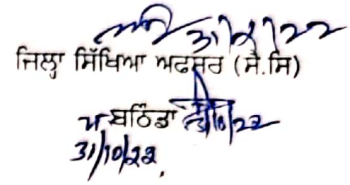 31/10/22
ਜਿਲ੍ਹਾ ਸਿੱਖਿਆ ਅਫਸਰ (ਸੈ.ਸਿ)
ਬਠਿੰਡਾ
31/10/22